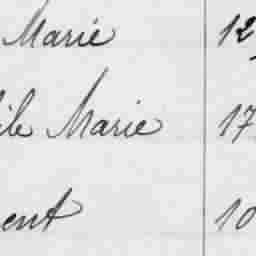 Marie 12
ile Marie 17
ent 10